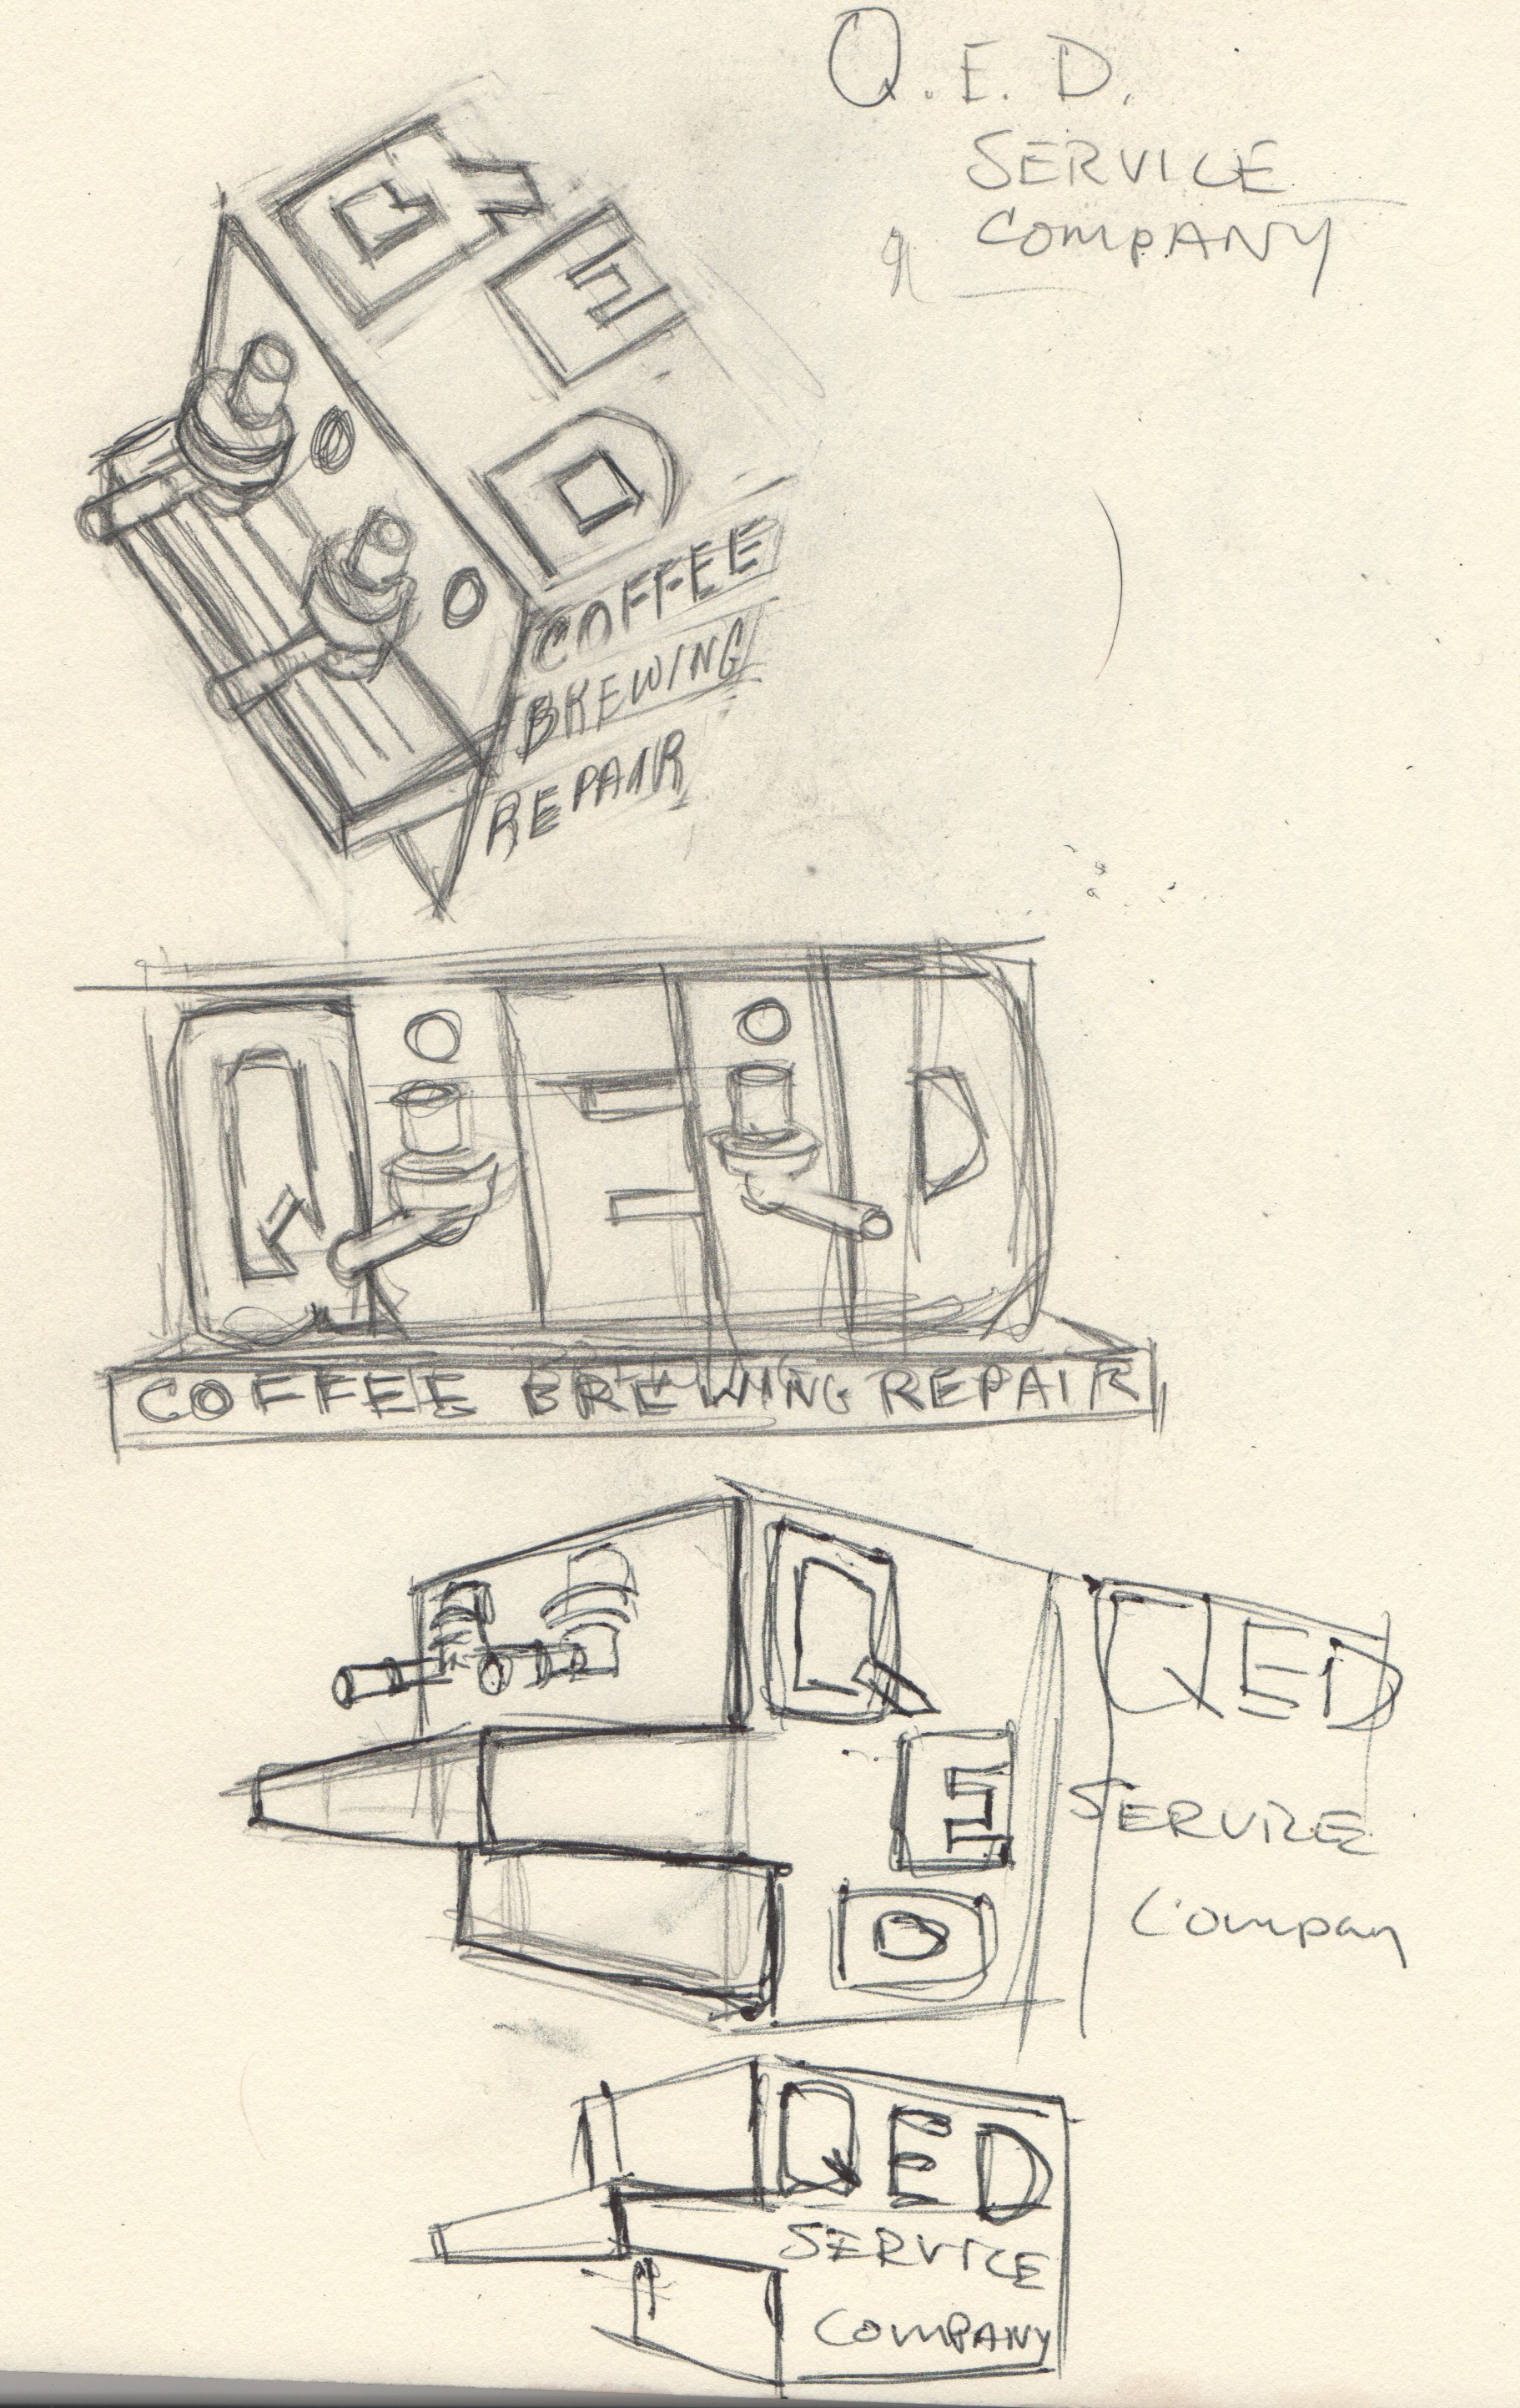 Q.E.D.
SERVICE
COMPANY
Q
E
D
COFFEE
BREWING
REPAIR
Q E D
COFFEE BREWING REPAIR
Q
E
D
QED
SERVICE
Company
QED
SERVICE
COMPANY